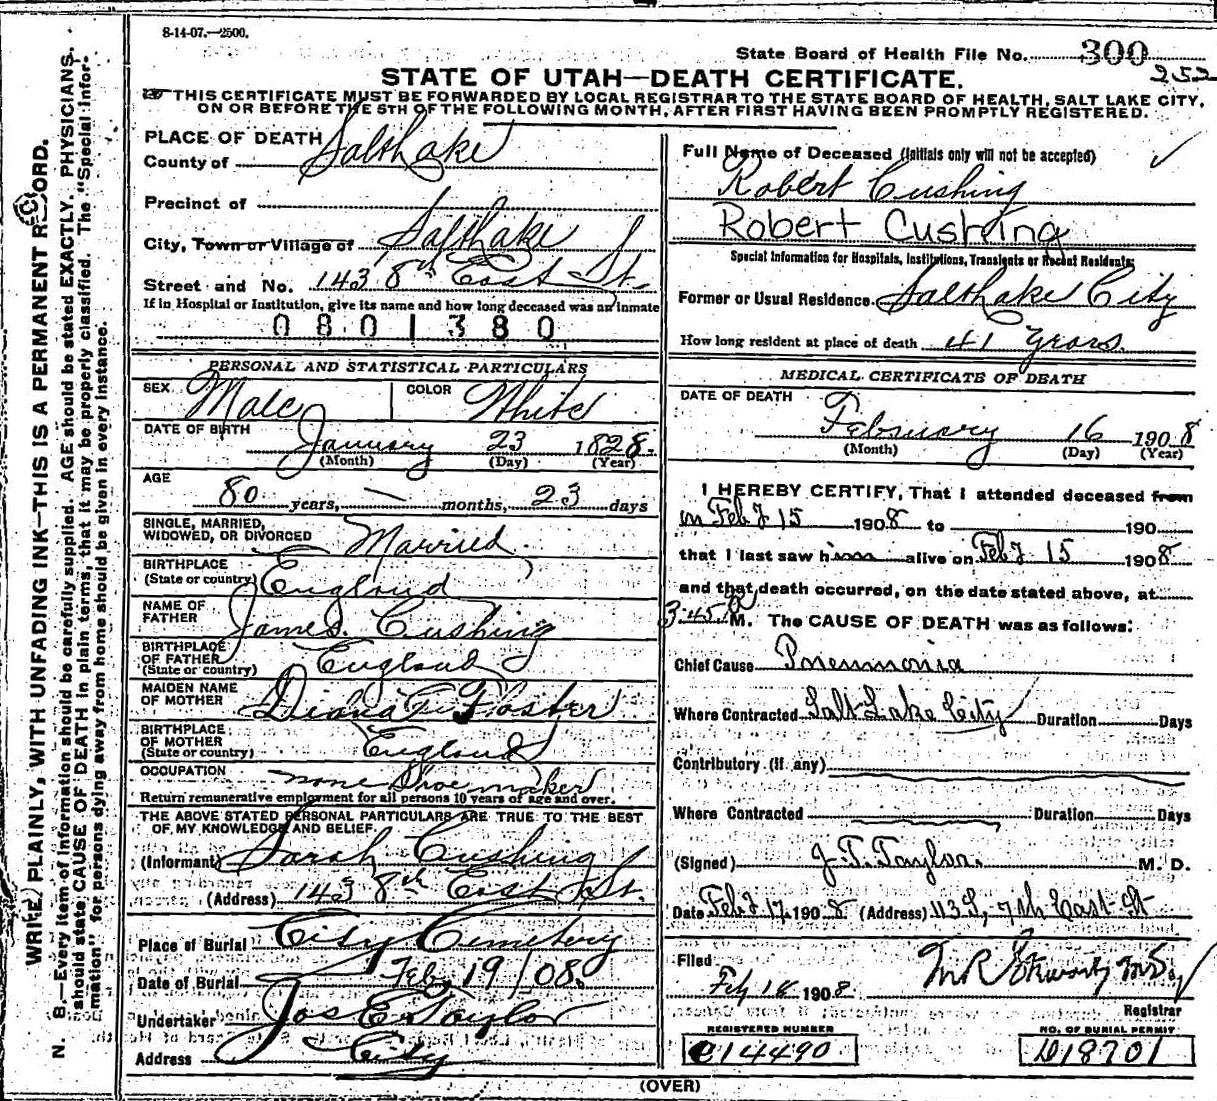 8-14-07.—2500.
State Board of Health File No. 300
252
STATE OF UTAH—DEATH CERTIFICATE.
THIS CERTIFICATE MUST BE FORWARDED BY LOCAL REGISTRAR TO THE STATE BOARD OF HEALTH, SALT LAKE CITY,
ON OR BEFORE THE 5TH OF THE FOLLOWING MONTH, AFTER FIRST HAVING BEEN PROMPTLY REGISTERED.
WRITE PLAINLY, WITH UNFADING INK—THIS IS A PERMANENT RECORD.
N. B.—Every item of information should be carefully supplied. AGE should be stated EXACTLY. PHYSICIANS
should state CAUSE OF DEATH in plain terms, that it may be properly classified. The "Special Infor-
mation" for persons dying away from home should be given in every instance.
PLACE OF DEATH
County of Salt Lake
Precinct of
City, Town or Village of Salt Lake
Street and No. 143 8th East St.
If in Hospital or Institution, give its name and how long deceased was an inmate
0801380
PERSONAL AND STATISTICAL PARTICULARS
SEX Male COLOR White
DATE OF BIRTH
January 23 1828.
(Month) (Day) (Year)
AGE
80 years, — months, 23 days
SINGLE, MARRIED,
WIDOWED, OR DIVORCED Married
BIRTHPLACE
(State or country) England
NAME OF
FATHER James Cushing
BIRTHPLACE
OF FATHER
(State or country) England
MAIDEN NAME
OF MOTHER Diana Foster
BIRTHPLACE
OF MOTHER
(State or country) England
OCCUPATION none Shoe maker
Return remunerative employment for all persons 10 years of age and over.
THE ABOVE STATED PERSONAL PARTICULARS ARE TRUE TO THE BEST
OF MY KNOWLEDGE AND BELIEF.
(Informant) Sarah Cushing
(Address) 143 8th East St.
Place of Burial City Cemetery
Date of Burial Feb. 19/08.
Undertaker Jos E Taylor
Address City
Full Name of Deceased (Initials only will not be accepted)
Robert Cushing
Robert Cushing
Special Information for Hospitals, Institutions, Transients or Recent Residents:
Former or Usual Residence Salt Lake City
How long resident at place of death 41 years.
MEDICAL CERTIFICATE OF DEATH
DATE OF DEATH
February 16 1908
(Month) (Day) (Year)
I HEREBY CERTIFY, That I attended deceased from
on Feby 15 1908 to 190
that I last saw him alive on Feby 15 1908
and that death occurred, on the date stated above, at
3:45 M. The CAUSE OF DEATH was as follows:
Chief Cause Pneumonia
Where Contracted Salt Lake City Duration Days
Contributory (if any)
Where Contracted Duration Days
(Signed) J. T. Taylor. M. D.
Date Feby 17 1908 (Address) 113 S. 7th East St
Filed
Feby 18 1908
Registrar
REGISTERED NUMBER
C14490
NO. OF BURIAL PERMIT
D18701
(OVER)